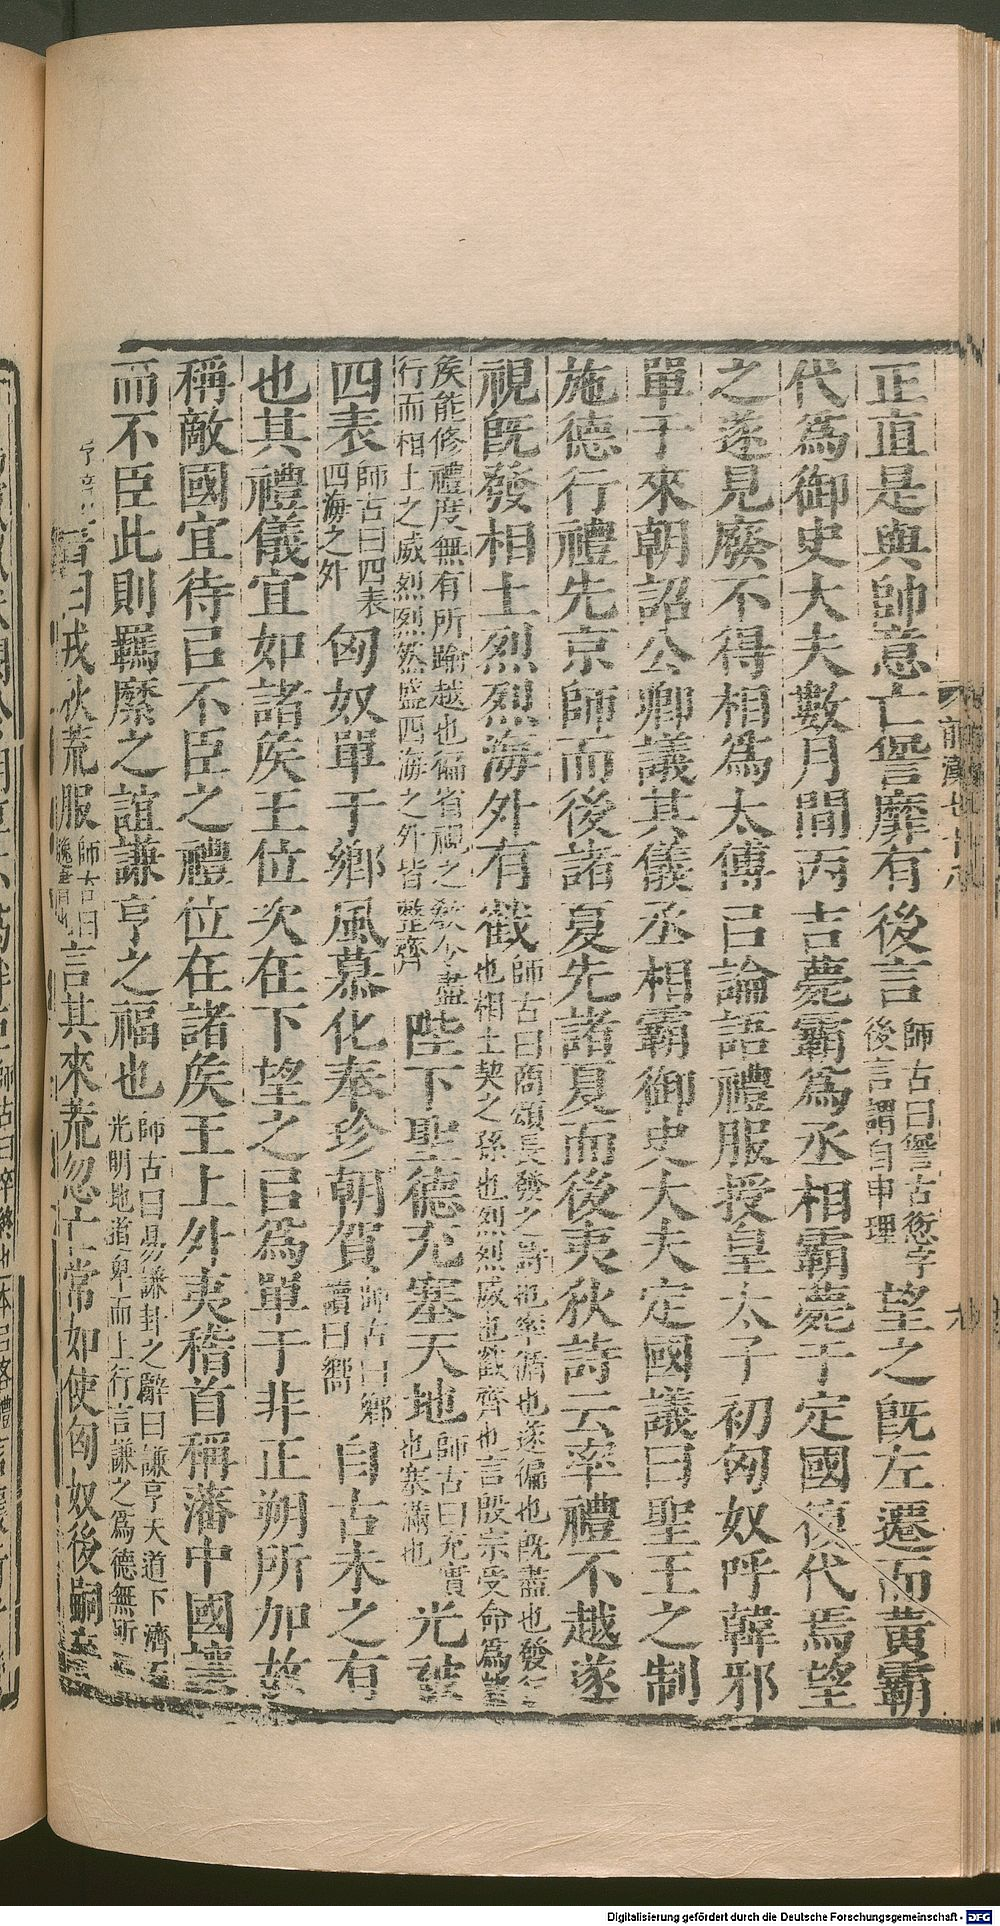 正直是與帥意亡諐靡有後言師古曰諐古愆字後言謂自申理望之旣左遷而黃霸
代爲御史大夫數月間丙吉薨霸爲丞相霸薨于定國復代焉望
之遂見廢不得相爲太傅㠯論語禮服授皇太子初匈奴呼韓邪
單于來朝詔公卿議其儀丞相霸御史大夫定國議曰聖王之制
施德行禮先京師而後諸夏先諸夏而後夷狄詩云率禮不越遂
視旣發相土烈烈海外有截師古曰商頌長發之詩也率循也遂徧也旣盡也發行也相土契之孫也烈烈威也截齊也言殷宗受命爲諸
矦能修禮度無有所踰越也徧省視之敎令盡行而相土之威烈烈然盛四海之外皆整齊陛下聖德充塞天地師古曰充實也塞滿也光被
四表師古曰四表四海之外匈奴單于鄉風慕化奉珍朝賀師古曰鄉讀曰嚮自古未之有
也其禮儀宜如諸矦王位次在下望之㠯爲單于非正朔所加故
稱敵國宜待㠯不臣之禮位在諸矦王上外夷稽首稱藩中國讓
而不臣此則羈縻之誼謙亨之福也師古曰易謙卦之辭曰謙亨天道下濟而光明地道卑而上行言謙之爲德無所
曰戎狄荒服師古曰言其來荒忽亡常如使匈奴後嗣
前漢七十八
Digitalisierung gefördert durch die Deutsche Forschungsgemeinschaft - DFG